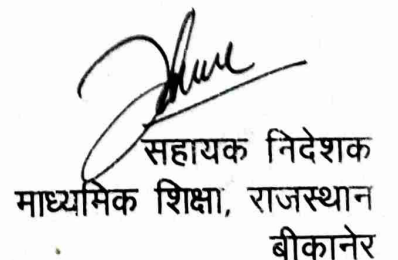 सहायक निदेशक
माध्यमिक शिक्षा, राजस्थान
बीकानेर